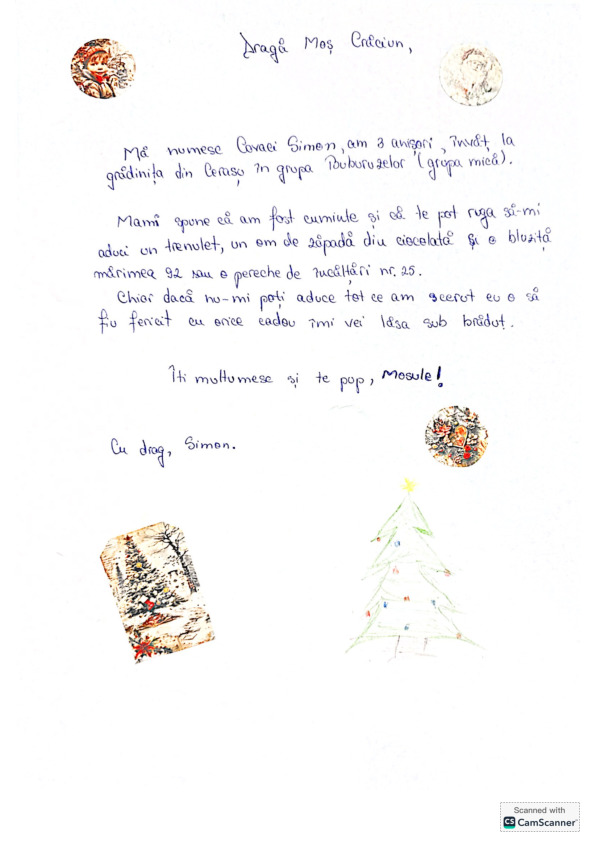 Dragă Moș Crăciun,
Mă numesc Covaci Simon, am 3 anișori, învăț la
grădinița din Cerașu în grupa Buburuzelor (grupa mică).
Mami spune că am fost cuminte și că te pot ruga să-mi
aduci un trenuleț, un om de zăpadă din ciocolată și o bluziță
mărimea 92 sau o pereche de încălțări nr. 25.
Chiar dacă nu-mi poți aduce tot ce am scerut eu o să
fiu fericit cu orice cadou îmi vei lăsa sub brăduț.
Îți mulțumesc și te pup, Moșule!
Cu drag, Simon.
Scanned with
CS CamScanner